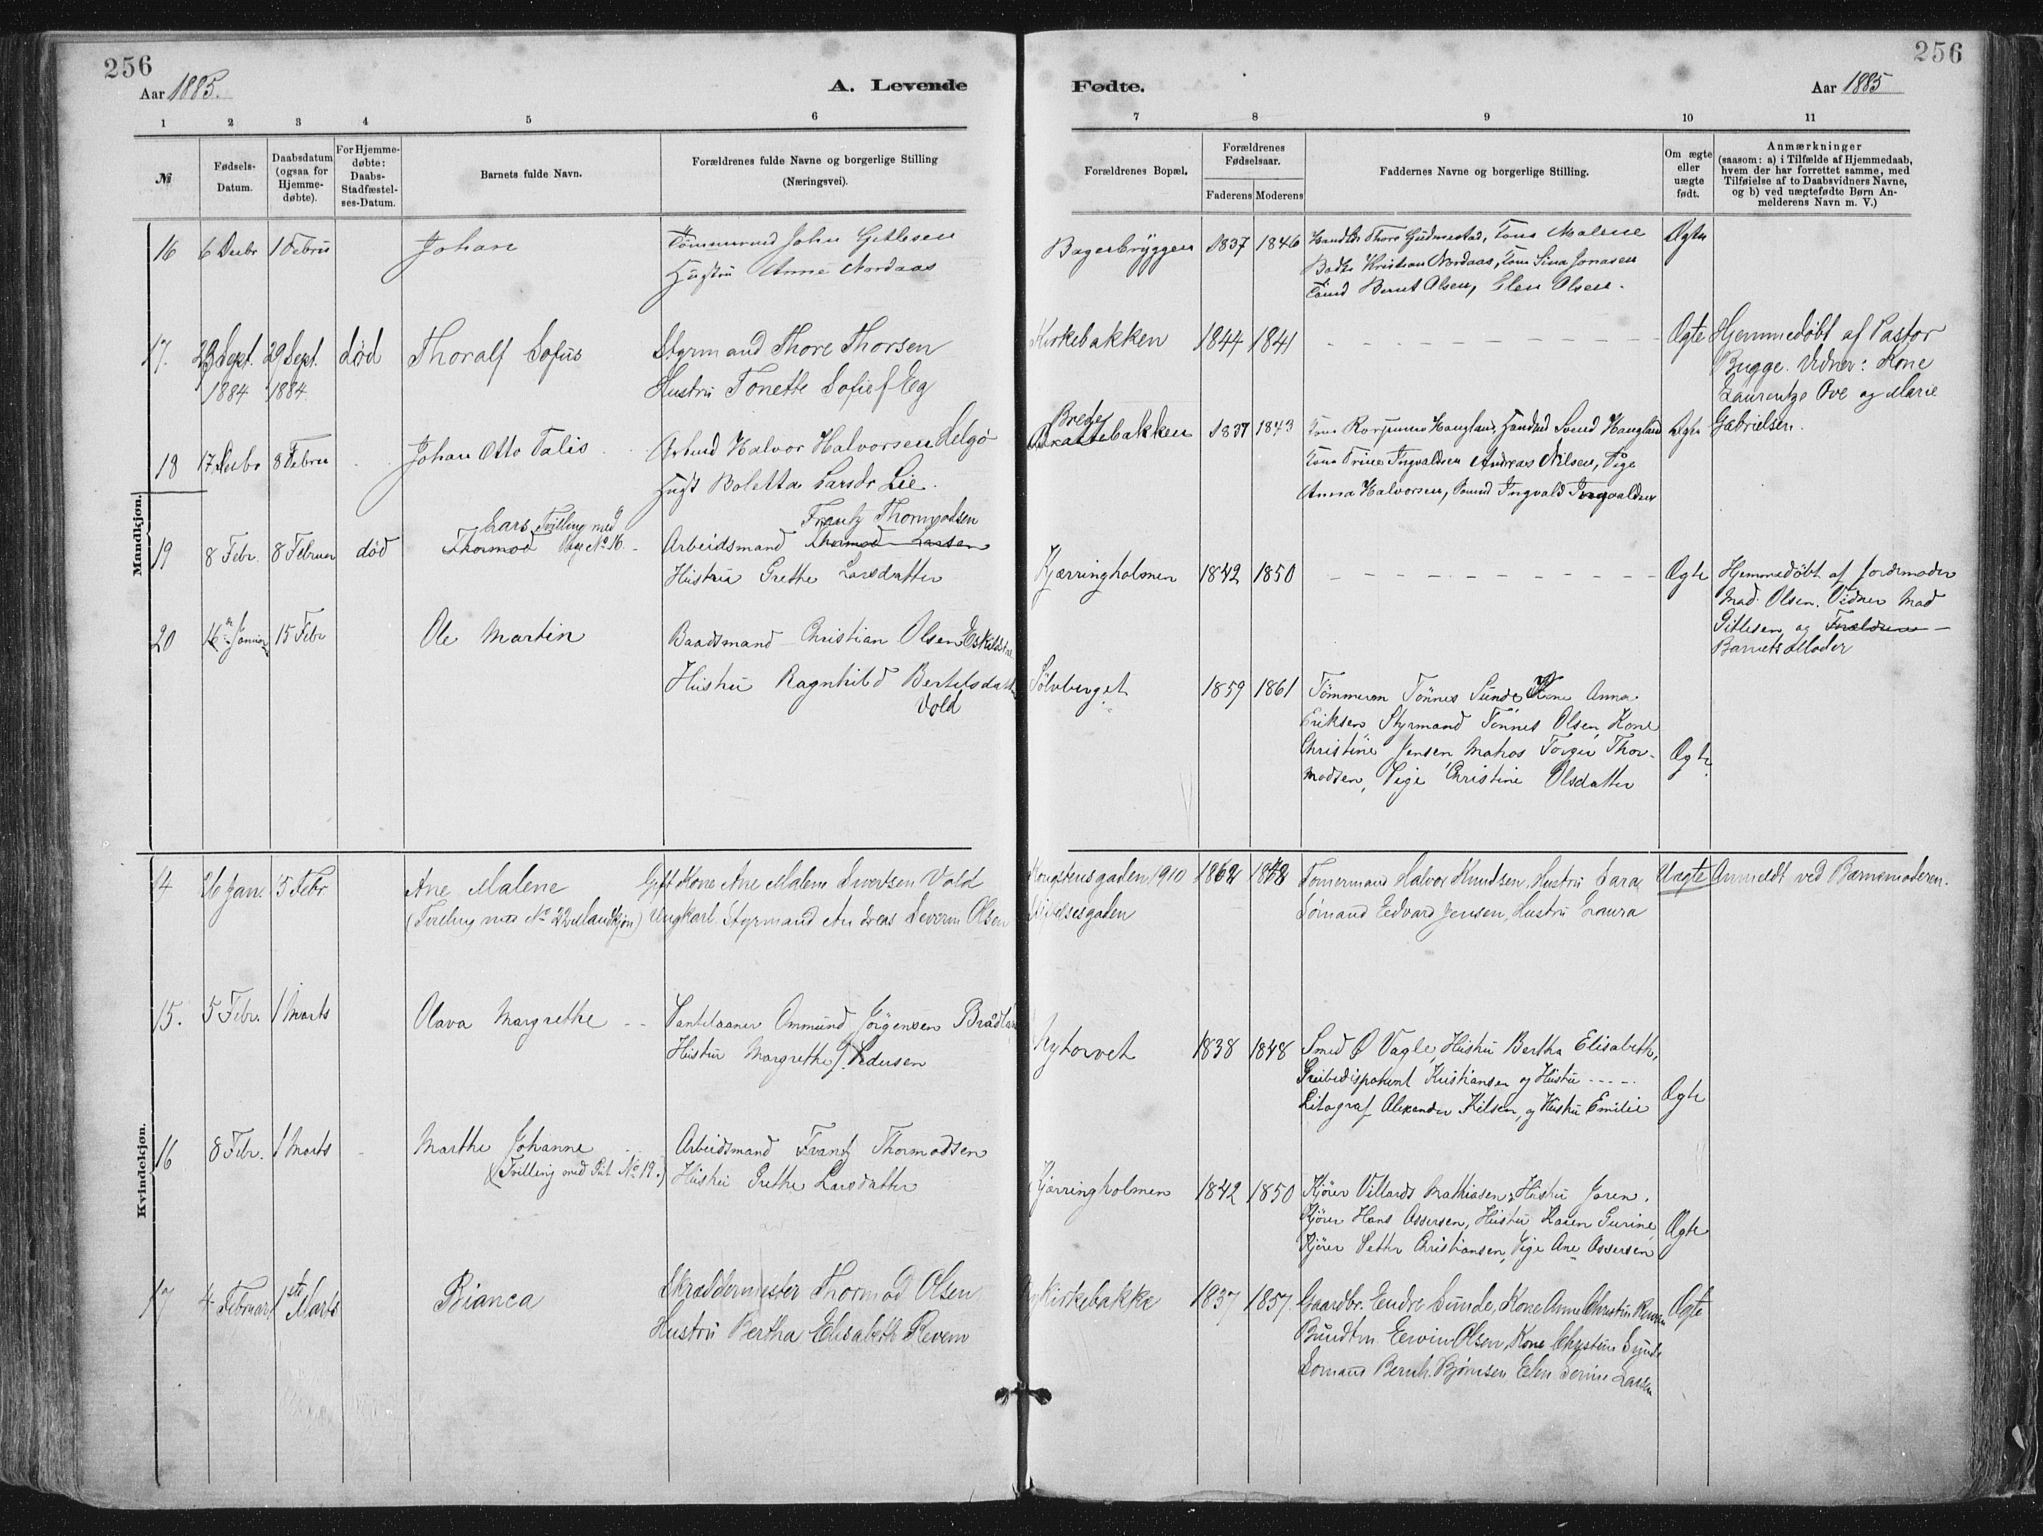 256
Aar 1885.
A. Levende
1 2 3 4 5 6
№
Fødsels-Datum.
Daabsdatum (ogsaa for Hjemme-døbte).
For Hjemme-døbte: Daabs-Stadfæstel-ses-Datum.
Barnets fulde Navn.
Forældrenes fulde Navne og borgerlige Stilling
(Næringsvei).
Mandkjøn.
16 6 Decbr 1 Februar Johan John Gitlesen
Hustru Anne Nordaas
17. 23 Sept. 29 Sept. død Thoralf Sofus Styrmand Thore Thorsen
1884 1884 Hustru Tonette Sofie f Eeg
18 17 Decbr 8 Februar Johan Otto Talis Arbmd Halvor Halvorsen Selgø
Hust Boletta Larsdr Lie.
Lars Tvilling med Frantz Thormodsen
19 8 Febr. 8 Februar død Thormod Pige No 16. Arbeidsmand Thormod Larsen
Hustru Grethe Larsdatter
20 16 Januar 15 Febr Ole Martin Baadsmand Christian Olsen
Hustru Ragnhild Bertelsdatt
Vold
Kvindekjøn.
14 26 Jan. 15 Febr Ane Malene Gift Kone Ane Malene Sivertsen Vold
(Tvilling med No 22 Mandkjøn) Ungkarl Styrmand Andreas Severin Olsen
15. 5 Febr. 1 Marts Olava Margrethe Ommund Jørgensen
Hustru Margrethe f. Pedersen
16 8 Febr. 1 Marts Marthe Johanne Arbeidsmand Frantz Thormodsen
(Tvilling med No 19.) Hustru Grethe Larsdatter
17 4 Februar 1ste Marts Bianca Skræddermester Thormod Olsen
Hustru Bertha Elisabeth Revem
256
Fødte.
Aar 1885
7 8 9 10 11
Forældrenes Bopæl,
Forældrenes Fødselsaar.
Faderens Moderens
Faddernes Navne og borgerlige Stilling.
Om ægte eller uægte født.
Anmærkninger
(saasom: a) i Tilfælde af Hjemmedaab,
hvem der har forrettet samme, med
Tilføielse af to Daabsvidners Navne,
og b) ved uægtefødte Børn An-
melderens Navn m. V.)
Bagerbryggen 1837 1846 Thore Gudmestad, Kone Malene Ægte
Kristian Nordaas, Kone Sina Jonasen
Bernt Olsen, Elen Olsen.
Kirkebakken 1844 1841 Ægte Hjemmedøbt af Pastor
Bugge. Vidner: Kone
Laurentze Ove og Marie
Gabrielsen.
Brede
bakken 1837 1843 Haugland, Svend Haugland Ægte
Kone Trine Ingvaldsen Andreas Nilsen, Pige
Anna Halvorsen, Ingvald Ingvaldsen
Kjærringholmen 1842 1850 Ægte Hjemmedøbt af Jordemoder
Mad. Olsen. Vidner Mad
Gitlesen og Forældrene
Barnets Moder
Sølvberget 1859 1861 Tømmerm Tønnes Sunde, Kone Anna
Eriksen, Styrmand Tønnes Olsen, Kone
Christine Jensen, Matros Torger Thor-
modsen, Pige Christine Olsdatter Ægte
Kongstensgaden 1910 1862 1848 Tømermand Halvor Knudsen, Hustru Sara Uægte Anmeldt ved Barnemoderen.
Sømand Edvard Jensen, Hustru Laura
Nytorvet 1838 1848 Smed O Vagle, Hustru Bertha Elisabeth,
Kristiansen og Hustru -----
Litograf Alexander Kilsen, og Hustru Emilie Ægte
Kjærringholmen 1842 1850 Kjører Villards Mathiasen, Hustru Joren.
Kjører Hans Assersen, Hustru Karen Gurine,
Kjører Petter Christiansen, Pige Ane Assersen Ægte
Kirkebakke 1837 1857. Gaardbr. Endre Sunde, Kone Anne Christine Revem Ægte
Bundtm Erwin Olsen, Kone Christine Sunde
Sømand Bernh. Bjørnsen, Elen Serine Larsen